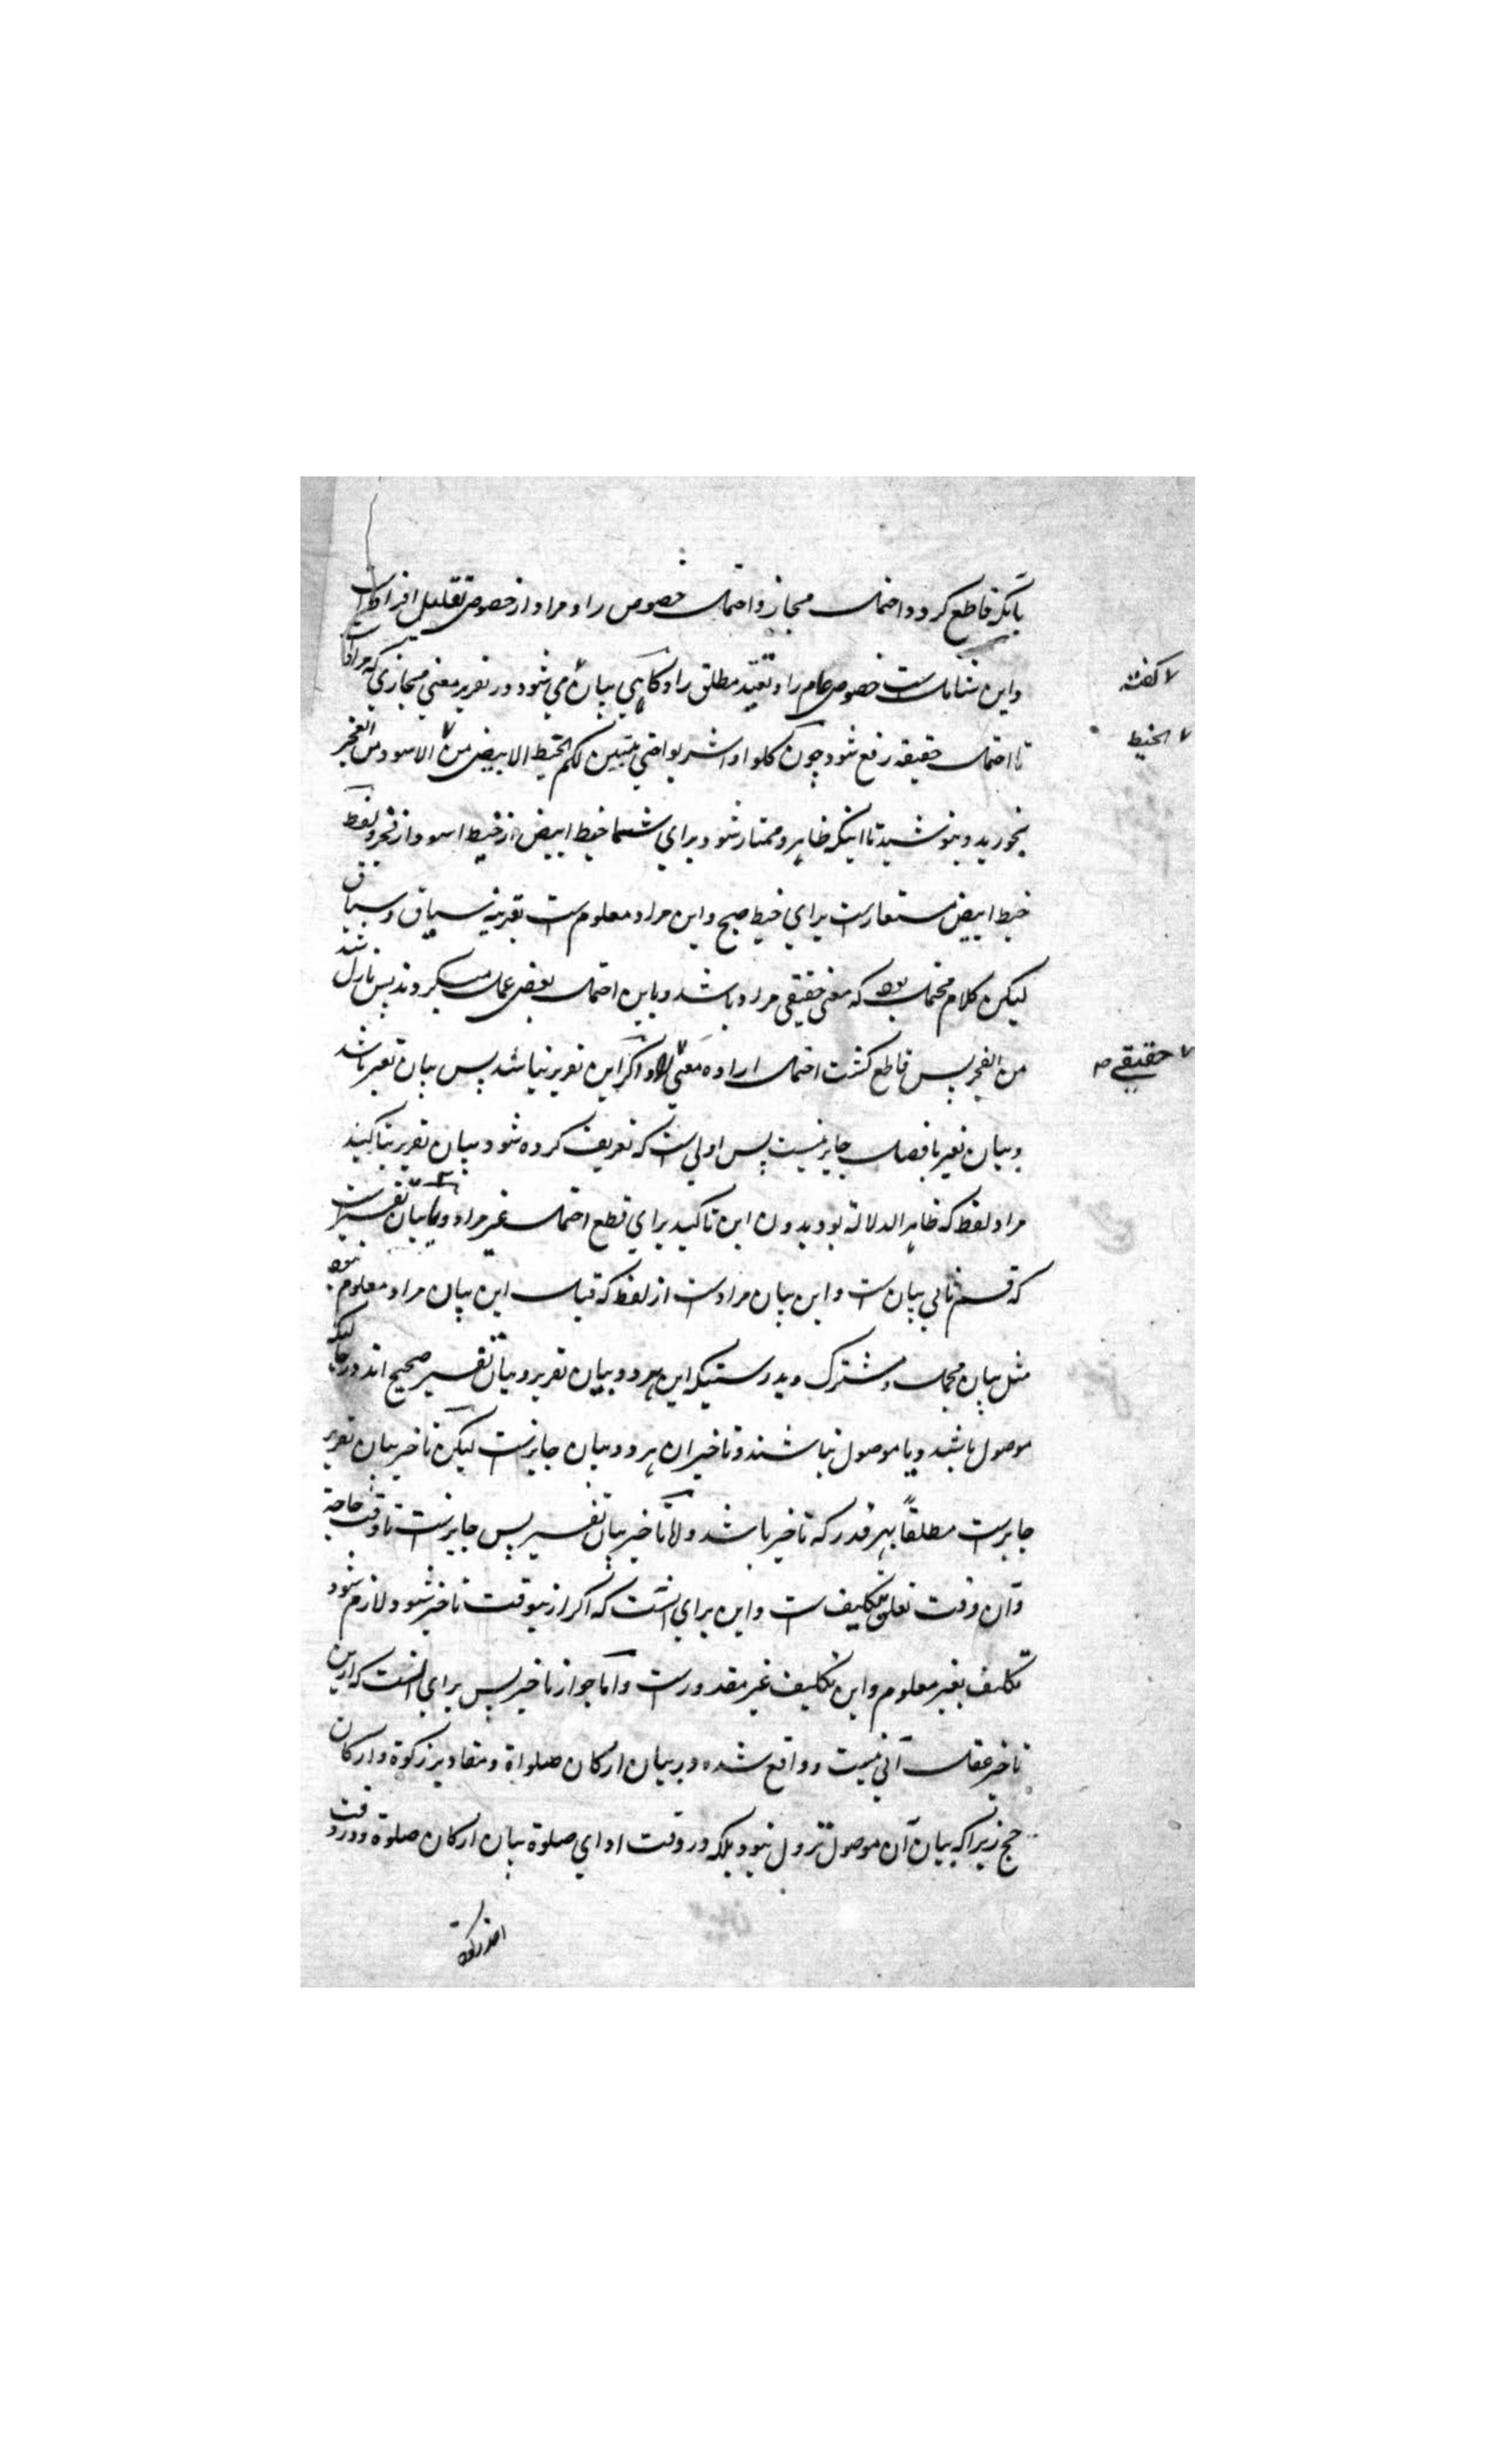 بانکه قاطع کردد احتمال مجاز و احتمال خصوص را و مراد از خصوص تقلیل افراد است
و این شاملست خصوص عام را و تقیید مطلق را و کاهی بیان می شود در تقریر معنی مجازی که مراد
کفته
تا احتمال حقیقه رفع شود چون کلوا و اشربوا حتی یتبین لکم الخیط الابیض من الاسود من الفجر
الخیط
بخورید و بنوشید تا اینکه ظاهر و ممتاز شود برای شما خیط ابیض از خیط اسود از فجر و لفظ
خیط ابیض مستعارست برای خیط صبح و این مراد معلوم ست بقرینه سیاق و سباق
لیکن کلام محتمل بود که معنی حقیقی مراد باشد و باین احتمال بعض عمل میکردند پس نازل شد
من الفجر پس قاطع کشت احتمال اراده معنی و اکر این تقریر نباشد پس بیان تغیر باشد
حقیقی
و بیان تغیر با فصل جایز نیست پس اولی ست که تعریف کرده شود بیان تقریر بتاکید
مراد لفظ که ظاهر الدلالة بود بدون این تاکید برای قطع احتمال غیر مراد و یا بیان تفسیرست
که قسم ثانی بیان ست و این بیان مرادست از لفظ که قبل این بیان مراد معلوم نبود
مثل بیان مجمل و مشترک و بدرستیکه این هر دو بیان تقریر و بیان تفسیر صحیح اند در حالیکه
موصول باشند و یا موصول نباشند و تاخیر ان هر دو بیان جایزست لیکن تاخیر بیان تقریر
جایزست مطلقاً بهر قدر که تاخیر باشد و اما تاخیر بیان تفسیر پس جایزست تا وقت حاجة
و آن وقت تعلق تکلیف ست و این برای انست که اکر ازینوقت تاخیر شود لازم شود
تکلیف بغیر معلوم و این تکلیف غیر مقدورست و اما جواز تاخیر پس برای انست که ازین
تاخیر عقل آبی نیست و واقع شده در بیان ارکان صلواة و مقادیر زکوة و ارکان
حج زیرا که بیان آن موصول نزول نبود بلکه در وقت ادای صلوة بیان ارکان صلوة و در وقت
اخذ زکوة